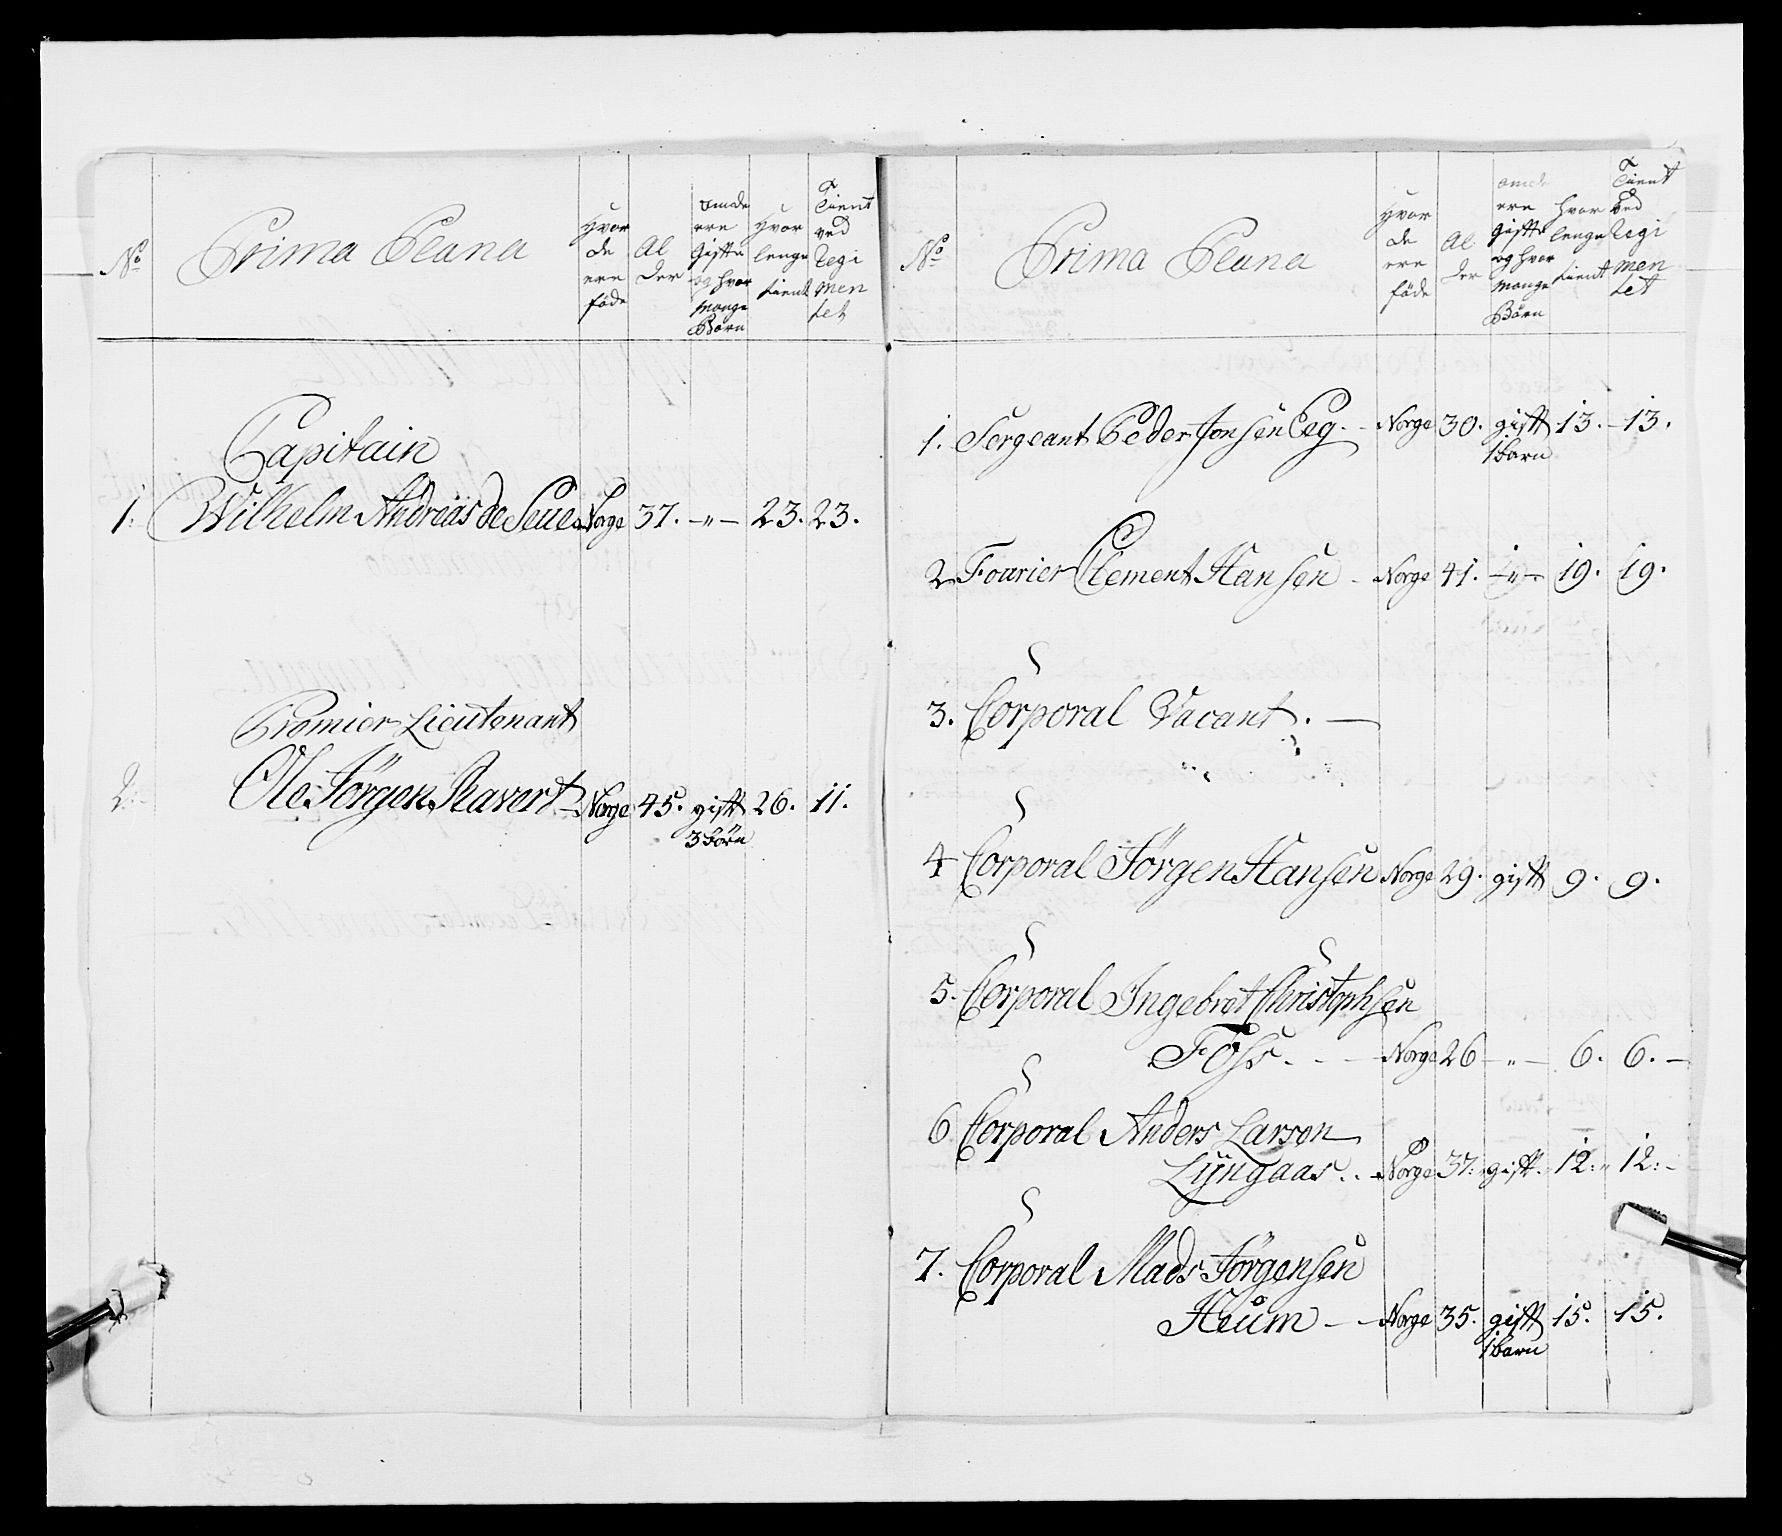 No Prima Plana Hvor de ere föde Al der omde ere Gifte og hvor mange Börn Hvor lenge tient Tient ved Regi men tet
Capitain
1. Wilhelm Andreas de Seue Norge 37. -"- 23. 23.
Premier Lieutenant
2. Ole Jörgen Ravert Norge 45. gift 26. 11.
3 börn
No Prima Plana Hvor de ere föde Al der omde ere gifte og hvor mange Börn hvor lenge tient Tient ved Regi men tet
1. Sergeant Peder Jonsen Eeg. - Norge 30. gift 13. - 13.
1 barn
2 Fourier Clement Hansen - Norge 41. -"- 19. 19.
3. Corporal Vacant. -
4 Corporal Jörgen Hansen Norge 29. gift 9. 9.
5. Corporal Ingebret Christophsen
Foss. - - Norge 26 -"- 6. 6. -
6 Corporal Anders Larsen
Lyngaas. . - Norge 37: gift. 12: 12: -
7. Corporal Mads Jörgensen
Heum - - Norge 35. gift 15. 15.
1 barn